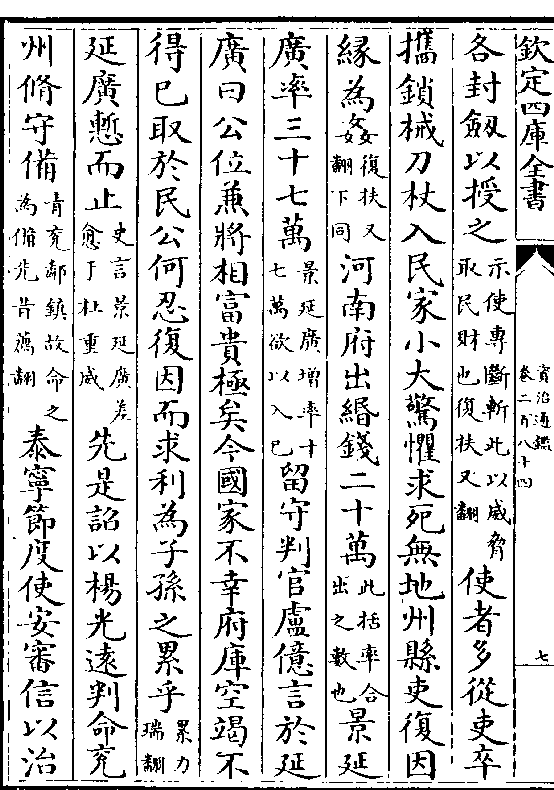 欽定四庫全書
資治通鑑
卷二百八十四
七
各封劔以授之示使專斷斬此以威脅取民財也復扶又翻使者多從吏卒
攜鎖械刀杖入民家小大驚懼求死無地州縣吏復因
緣為姦復扶又翻下同河南府出緡錢二十萬此括率合出之數也景延
廣率三十七萬景延廣增率十七萬欲以入已留守判官盧億言於延
廣曰公位兼將相富貴極矣今國家不幸府庫空竭不
得已取於民公何忍復因而求利為子孫之累乎累力瑞翻
延廣慙而止史言景延廣差愈于杜重威先是詔以楊光遠判命兖
州脩守備青兖鄰鎮故命之為備先昔薦翻泰寧節度使安審信以治